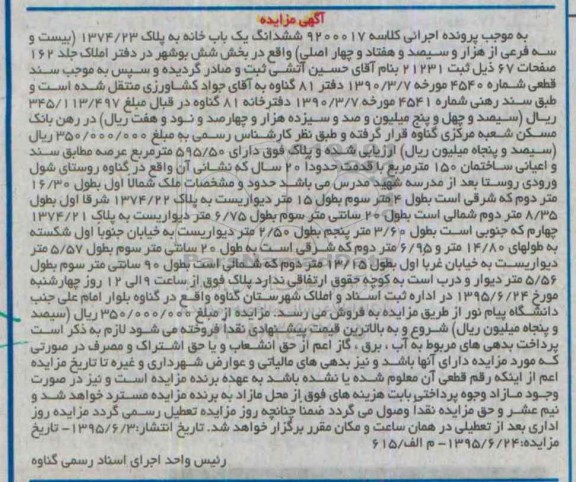 آگهی مزایده
به موجب پرونده اجرائی کلاسه ۹۲۰۰۰۱۷ ششدانگ یک باب خانه به پلاک ۱۳۷۴/۲۳ (بیست و
سه فرعی از هزار و سیصد و هفتاد و چهار اصلی) واقع در بخش شش بوشهر در دفتر املاک جلد ۱۶۲
صفحات ۶۷ ذیل ثبت ۲۱۲۳۱ بنام آقای حسین آتشی ثبت و صادر گردیده و سپس به موجب سند
قطعی شماره ۴۵۴۰ مورخه ۱۳۹۰/۳/۷ دفتر ۸۱ گناوه به آقای جواد کشاورزی منتقل شده است و
طبق سند رهنی شماره ۴۵۴۱ مورخه ۱۳۹۰/۳/۷ دفترخانه ۸۱ گناوه در قبال مبلغ ۳۴۵/۱۱۳/۴۹۷
ریال (سیصد و چهل و پنج میلیون و صد و سیزده هزار و چهارصد و نود و هفت ریال) در رهن بانک
مسکن شعبه مرکزی گناوه قرار گرفته و طبق نظر کارشناس رسمی به مبلغ ۳۵۰/۰۰۰/۰۰۰ ریال
(سیصد و پنجاه میلیون ریال) ارزیابی شده و پلاک فوق دارای ۵۹۵/۵۰ مترمربع عرصه مطابق سند
و اعیانی ساختمان ۱۵۰ مترمربع با قدمت حدودا ۲۰ سال که نشانی آن واقع در گناوه روستای شول
ورودی روستا بعد از مدرسه شهید مدرس می باشد حدود و مشخصات ملک شمالا اول بطول ۱۶/۳۰
متر دوم که شرقی است بطول ۴ متر سوم بطول ۱۵ متر دیواریست به پلاک ۱۳۷۴/۲۲ شرقا اول بطول
۸/۳۵ متر دوم شمالی است بطول ۲۰ سانتی متر سوم بطول ۶/۷۵ متر دیواریست به پلاک ۱۳۷۴/۲۱
چهارم که جنوبی است بطول ۳/۶۰ متر پنجم بطول ۲/۵۰ متر دیواریست به خیابان جنوبا اول شکسته
به طولهای ۱۴/۸۰ متر و ۶/۹۵ متر دوم که شرقی است به طول ۲۰ سانتی متر سوم بطول ۵/۵۷ متر
دیواریست به خیابان غربا اول بطول ۱۳/۱۵ متر دوم که شمالی است بطول ۹۰ سانتی متر سوم بطول
۵/۵۶ متر دیوار و درب است به کوچه حقوق ارتفاقی ندارد پلاک فوق از ساعت ۹ الی ۱۲ روز چهارشنبه
مورخ ۱۳۹۵/۶/۲۴ در اداره ثبت اسناد و املاک شهرستان گناوه واقع در گناوه بلوار امام علی جنب
دانشگاه پیام نور از طریق مزایده به فروش می رسد. مزایده از مبلغ ۳۵۰/۰۰۰/۰۰۰ ریال (سیصد
و پنجاه میلیون ریال) شروع و به بالاترین قیمت پیشنهادی نقدا فروخته می شود لازم به ذکر است
پرداخت بدهی های مربوط به آب ، برق ، گاز اعم از حق انشعاب و یا حق اشتراک و مصرف در صورتی
که مورد مزایده دارای آنها باشد و نیز بدهی های مالیاتی و عوارض شهرداری و غیره تا تاریخ مزایده
اعم از اینکه رقم قطعی آن معلوم شده یا نشده باشد به عهده برنده مزایده است و نیز در صورت
وجود مازاد وجوه پرداختی بابت هزینه های فوق از محل مازاد به برنده مزایده مسترد خواهد شد و
نیم عشر و حق مزایده نقدا وصول می گردد ضمنا چنانچه روز مزایده تعطیل رسمی گردد مزایده روز
اداری بعد از تعطیلی در همان ساعت و مکان مقرر برگزار خواهد شد. تاریخ انتشار:۱۳۹۵/۶/۳- تاریخ
مزایده:۱۳۹۵/۶/۲۴- م الف/۶۱۵
رئیس واحد اجرای اسناد رسمی گناوه